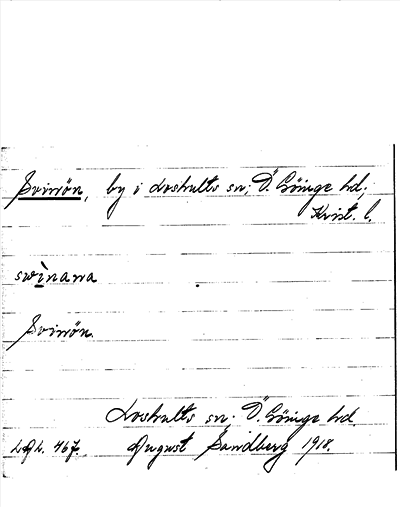 Svinön, by i Loshults sn; Ö. Göinge hd;
Krist. l.
swìnana
Svinön
Loshults sn; Ö. Göinge hd.
LAL. 467. August Sandberg 1918.